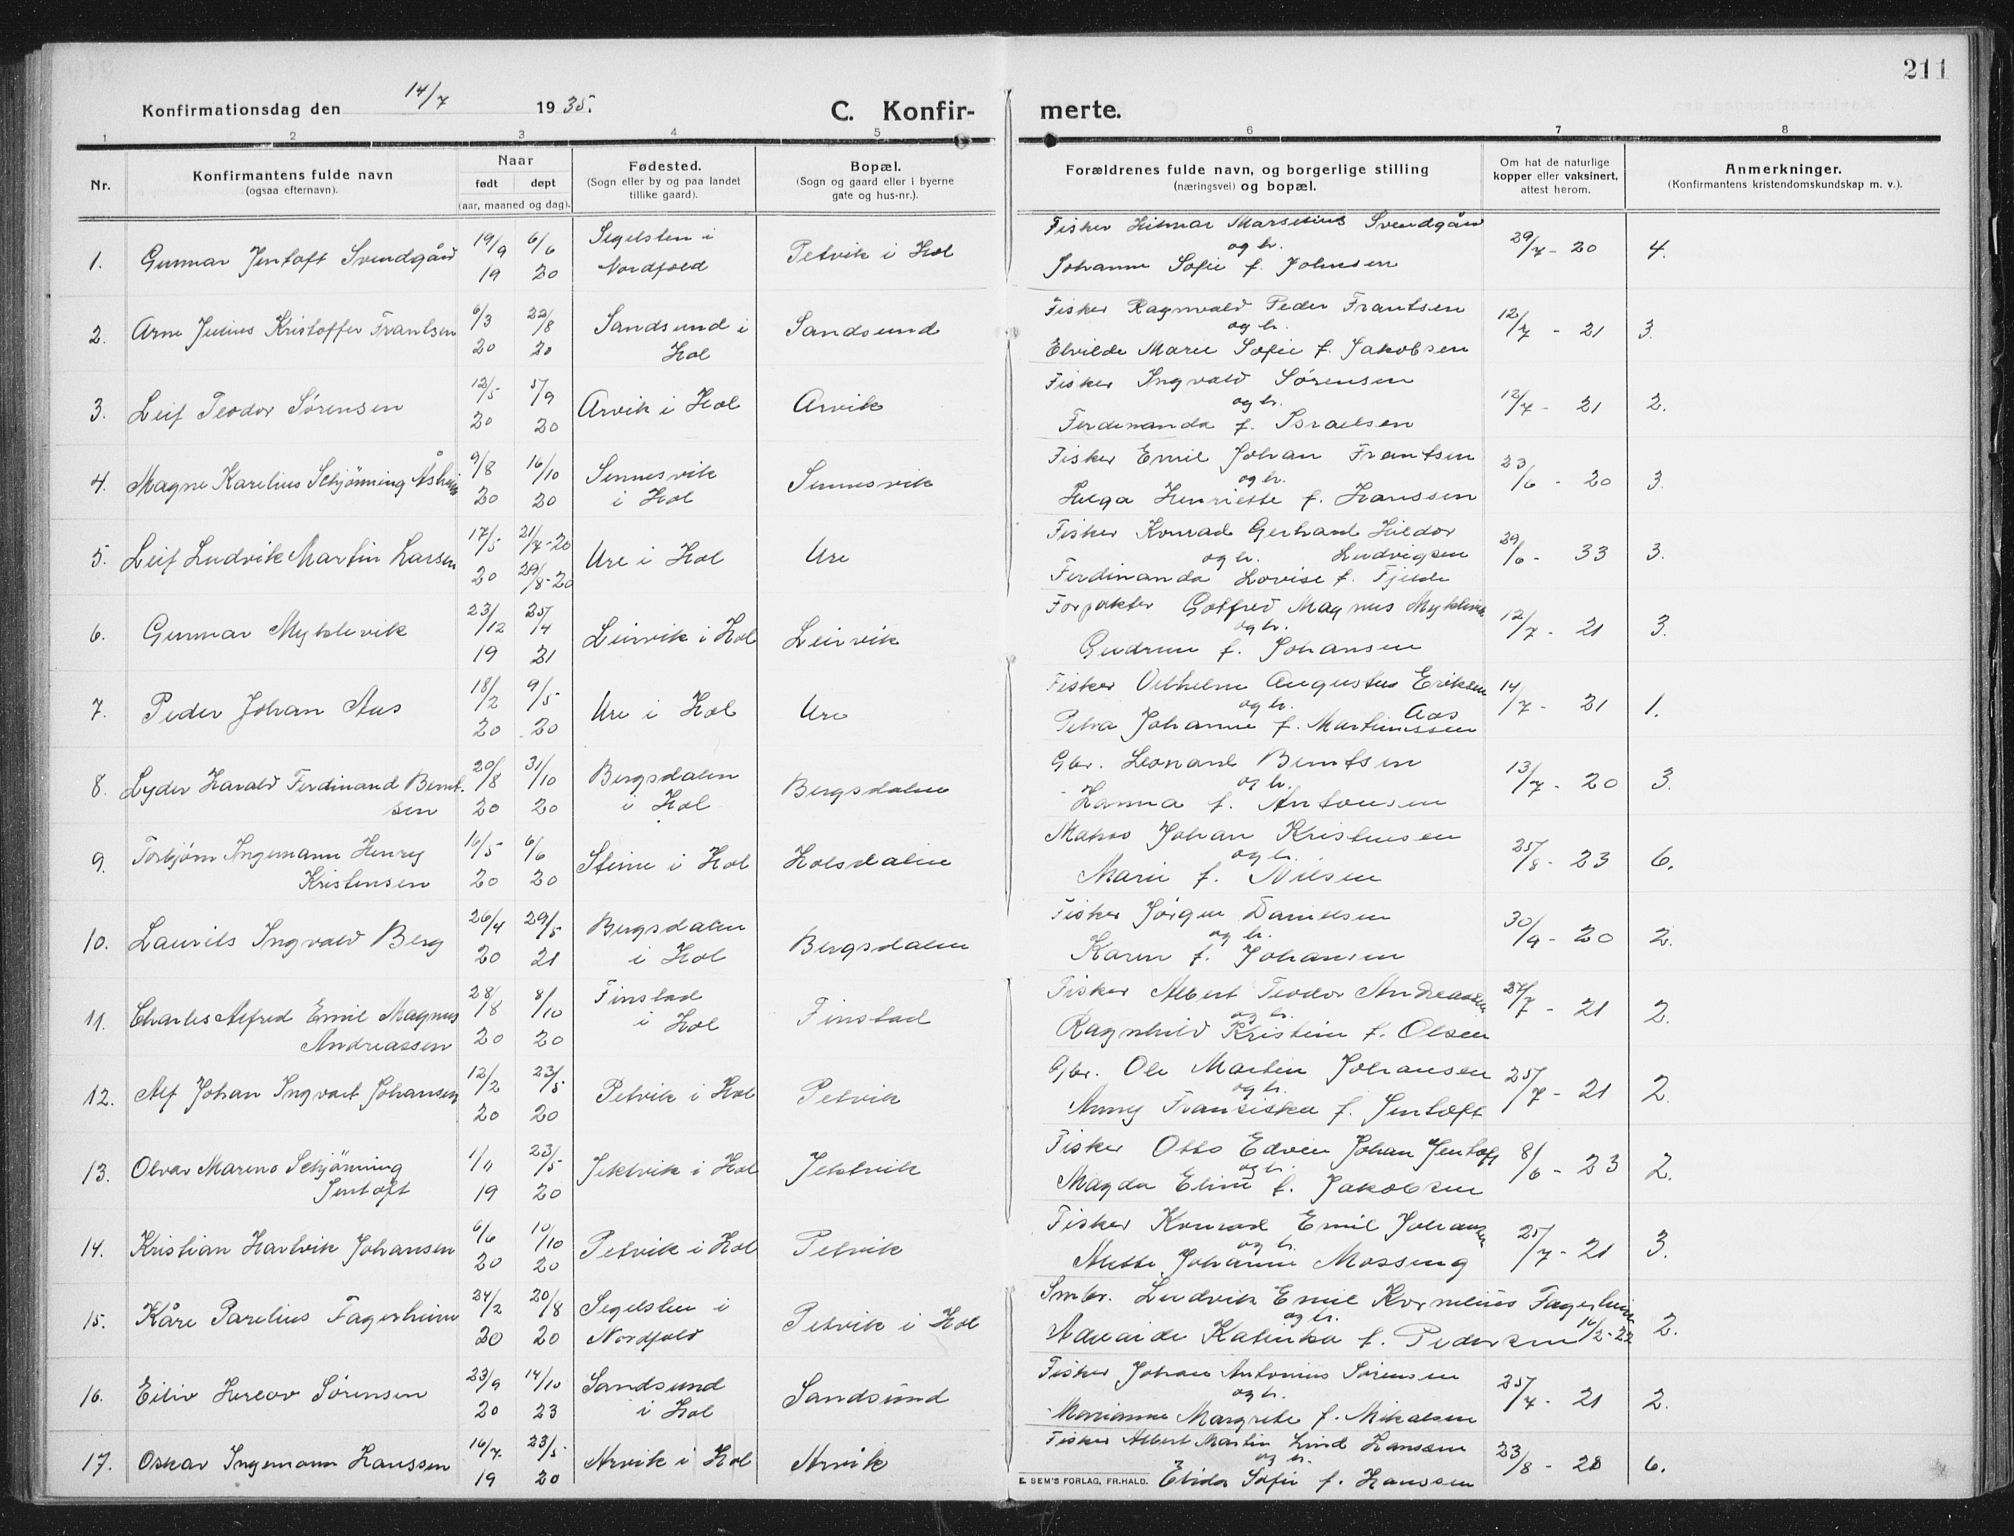 211
Konfirmationsdag den 14/7 1935.
C. Konfirmerte.
1 2 3 4 5 6 7 8
Nr.
Konfirmantens fulde navn
(ogsaa efternavn).
Naar
født døpt
(aar, maaned og dag).
Fødested.
(Sogn eller by og paa landet
tillike gaard).
Bopæl.
(Sogn og gaard eller i byerne
gate og hus-nr.).
Forældrenes fulde navn, og borgerlige stilling
(næringsvei) og bopæl.
Om hat de naturlige
kopper eller vaksinert,
attest herom.
Anmerkninger.
(Konfirmantens kristendomskundskap m. v.).
1. Gunnar Jentoft Svendgård 19/9 19 6/6 20 Segelsten i Nordfold Petvik i Hol
Fisker Hilmar Marselius Svendgård
og h.
Johanne Sofie f. Johnsen
29/7 - 20 4.
2. Arne Julius Kristoffer Frantsen 6/3 20 22/8 20 Sandsund i Hol Sandsund
Fisker Ragnvald Peder Frantsen
og h.
Elvilde Marie Sofie f. Jakobsen
12/7 - 21 3.
3. Leif Teodor Sørensen 12/5 20 5/9 20 Arvik i Hol Arvik
Fisker Ingvald Sørensen
og h.
Ferdinanda f. Israelsen
12/7 - 21 2.
4. Magne Karelius Schjønning Åsheim 9/8 20 16/10 20 Sennesvik i Hol Sennesvik
Fisker Emil Johan Frantsen
og h.
Helga Henriette f. Hanssen
23/6 - 20 3.
5. Leif Ludvik Martin Larsen 17/5 20 21/7-20 29/8-20 Ure i Hol Ure
Fisker Konrad Gerhard Hildor
og h. Ludvigsen
Ferdinanda Lovise f. Fjelde
29/6 - 33 3.
6. Gunnar Myklevik 23/12 19 25/4 21 Leirvik i Hol Leirvik
Forpakter Gotfred Magnus Myklevik
og h.
Gudrun f. Johansen
12/7 - 21 3.
7. Peder Johan Aas 18/2 20 9/5 20 Ure i Hol Ure
Fisker Vilhelm Augustus Eriksen
og h. Aas
Petra Johanne f. Martinussen
14/7 - 21 1.
8. Lyder Harald Ferdinand Berntsen 20/8 20 31/10 20 Bergsdalen i Hol Bergsdalen
Gbr. Leonard Berntsen
og h.
Hanna f. Antonsen
13/7 - 20 3.
9. Torbjørn Ingemann Henry Kristensen 16/5 20 6/6 20 Steine i Hol Holsdalen
Johan Kristensen
og h.
Marie f. Nilsen
25/8 - 23 6.
10. Laurits Ingvald Berg 26/4 20 29/5 21 Bergsdalen i Hol Bergsdalen
Fisker Jørgen Danielsen
og h.
Karen f. Johansen
30/9 - 20 2.
11. Charles Alfred Emil Magnus Andreassen 28/8 20 8/10 20 Finstad i Hol Finstad
Fisker Albert Teodor Andreassen
og h.
Ragnhild Kristine f. Olsen
27/7 - 21 2.
12. Alf Johan Ingvart Johansen 12/2 20 23/5 20 Petvik i Hol Petvik
Gbr. Ole Martin Johansen
og h.
Anny Fransiska f. Jentoft
25/7 - 21 2.
13. Olvar Mareno Schjønning Jentoft 1/11 19 23/5 20 Jektvik i Hol Jektvik
Fisker Otto Edvin Johan Jentoft
og h.
Magda Eline f. Jakobsen
8/6 - 23 2.
14. Kristian Hartvik Johansen 6/6 20 10/10 20 Petvik i Hol Petvik
Fisker Konrad Emil Johansen
og h.
Mette Johanne Mossing
25/7 - 21 3.
15. Kåre Parelius Fagerheim 24/2 20 20/8 20 Segelsten i Nordfold Petvik i Hol
Smbr. Ludvik Emil Kornelius Fagerheim
og h.
Adelaide Katinka f. Pedersen 16/2-22 2.
16. Eiliv Herlov Sørensen 23/9 20 14/10 23 Sandsund i Hol Sandsund
Fisker Johan Antonius Sørensen
og h.
Marianne Margrete f. Mikalsen
25/7 - 21 2.
17. Oskar Ingemann Hanssen 16/7 19 23/5 20 Arvik i Hol Arvik
Fisker Albert Martin Lind Hanssen
og h.
Elida Sofie f. Hanssen
23/8 - 28 6.
E. SEM'S FORLAG, FR.HALD.